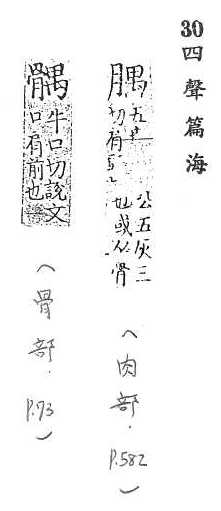 30 四聲篇海
腢 五
切
公五灰三
也或从骨
（肉部. P.582）
髃 牛口切說文
口肩前也
（骨部. P.73）